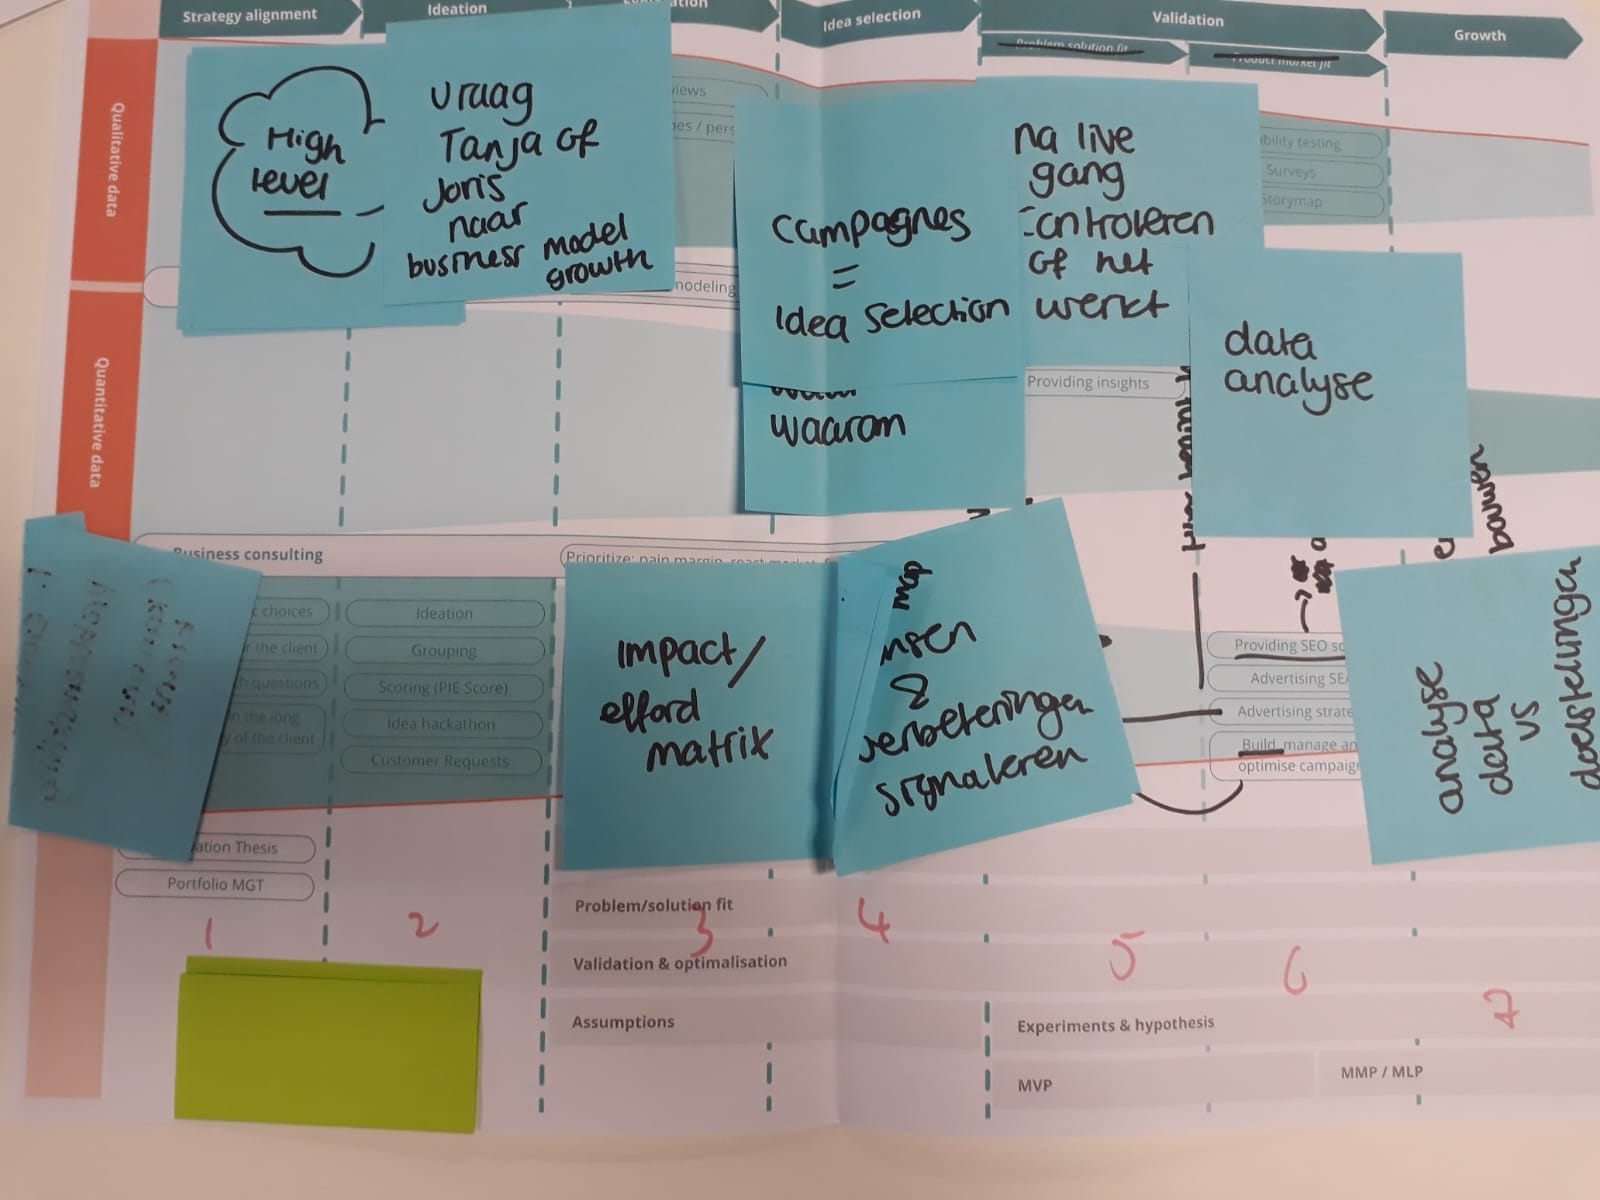 Strategy alignment
Ideation
Idea selection
Validation
Growth
Problem solution fit
Product market fit
Qualitative data
Quantitative data
High
Level
vraag
Tanja of
Joris
naar
business model
growth
campagnes
=
Idea selection
waarom
na live
gang
controleren
of het
werkt
data
analyse
bility testing
Surveys
Storymap
modeling
Providing insights
bouwen
Business consulting
Prioritize: pain margin,
choices
the client
questions
in the long
of the client
Ideation
Grouping
Scoring (PIE Score)
Idea hackathon
Customer Requests
Impact/
efford
matrix
map
nsen
&
verbeteringen
signaleren
Providing SEO
Advertising SEA
Advertising strate
Build, manage an
optimise campaig
analyse
data
vs
doelstellingen
ation Thesis
Portfolio MGT
Problem/solution fit
Validation & optimalisation
Assumptions
Experiments & hypothesis
MVP
MMP / MLP
1
2
3
4
5
6
7